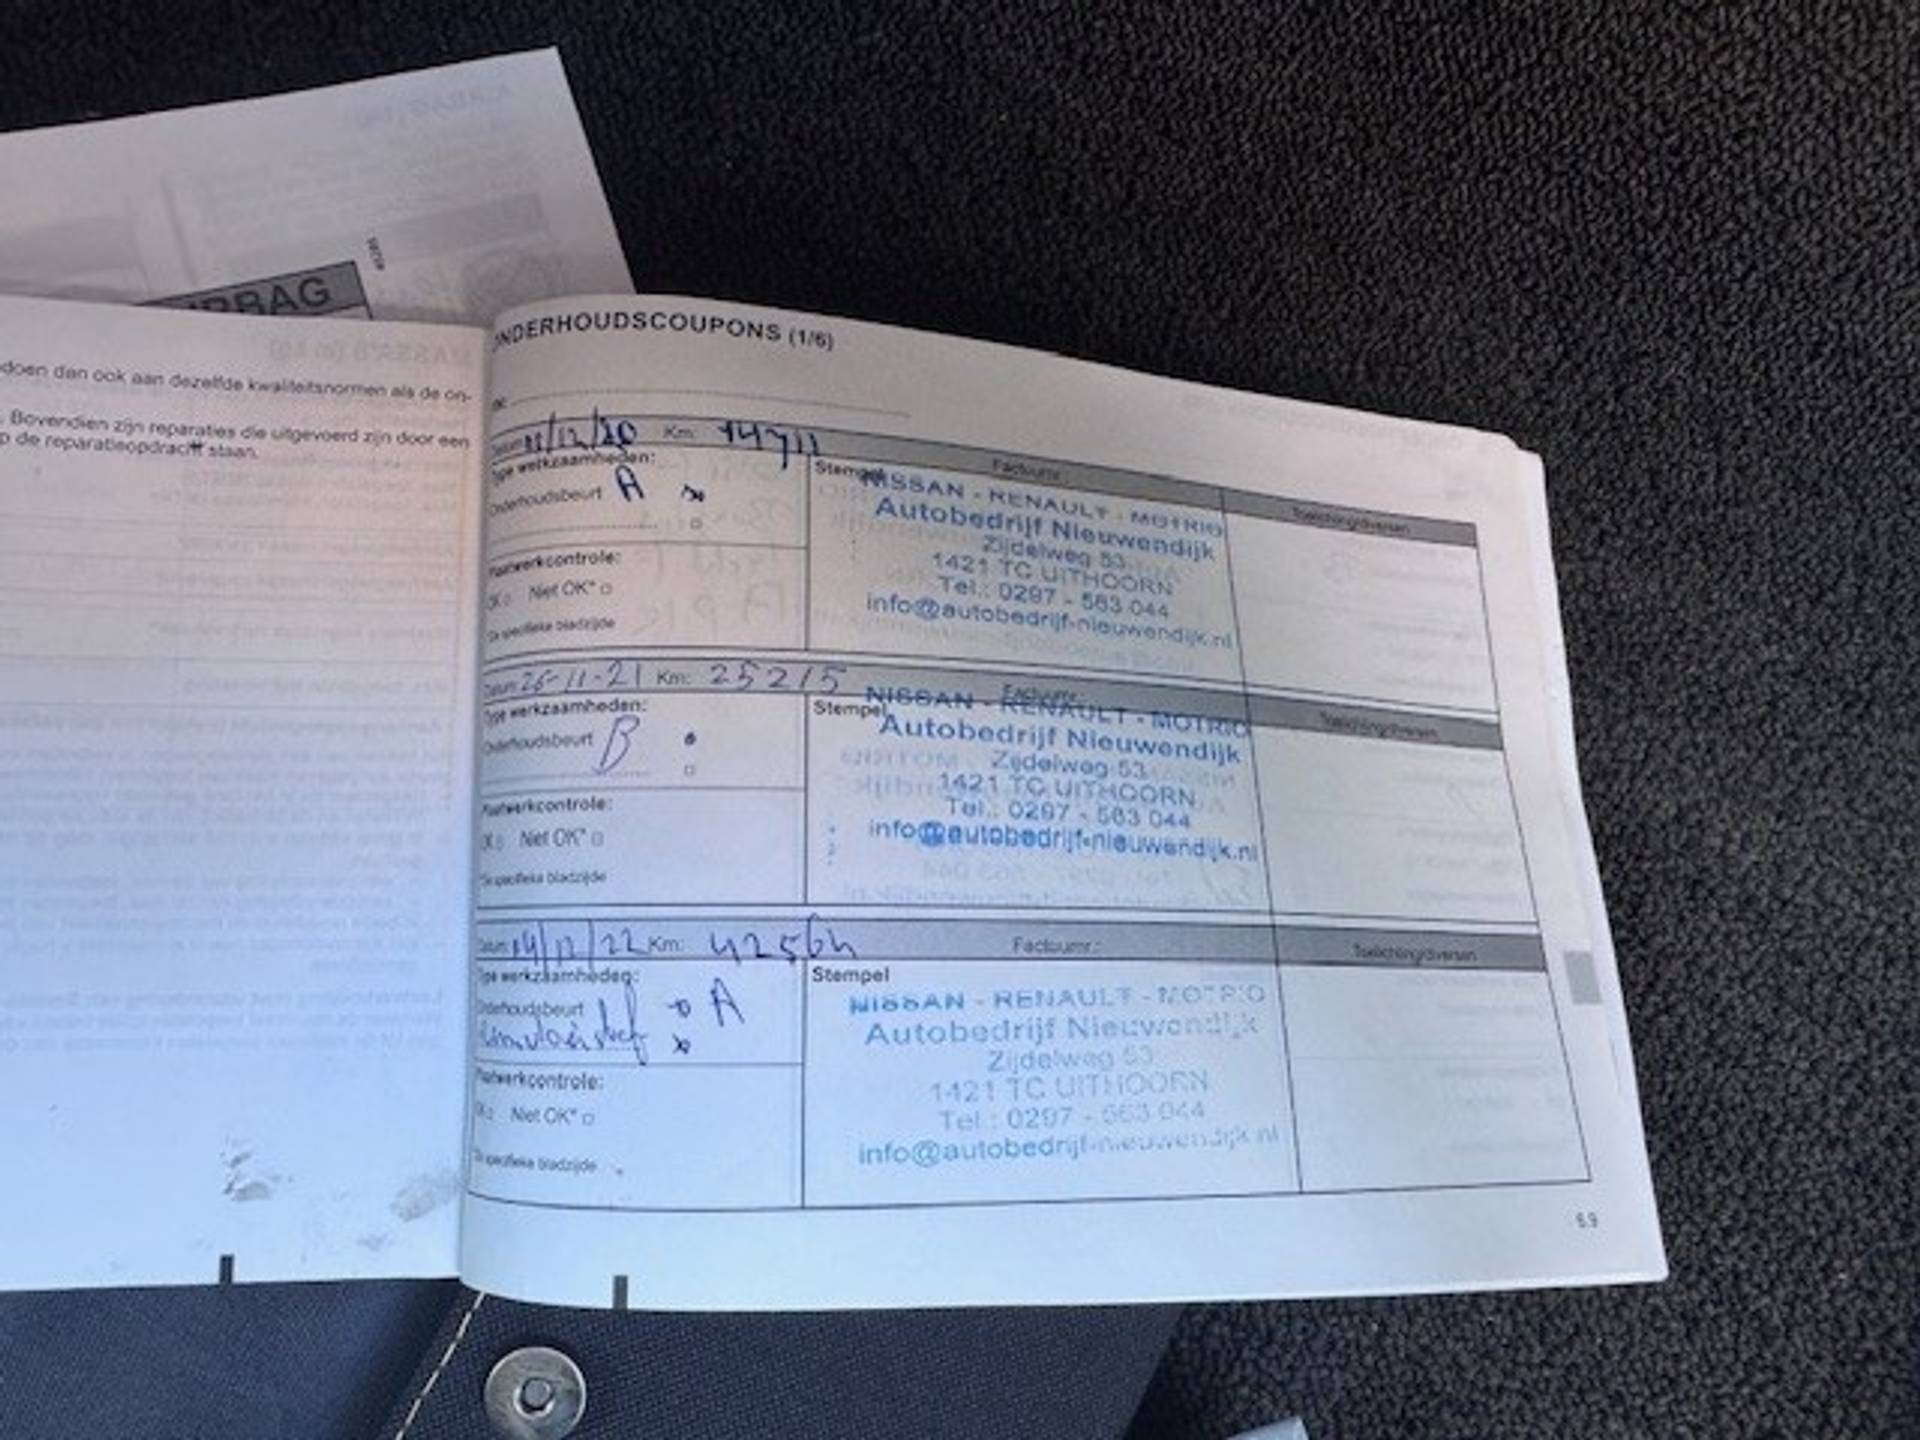 RBAG
doen dan ook aan dezelfde kwaliteitsnormen als de on-
. Bovendien zijn reparaties die uitgevoerd zijn door een
p de reparatieopdracht staan.
NDERHOUDSCOUPONS (1/6)
Datum: 11/12/20 Km: 14711 Factuurnr.:
Type werkzaamheden:
Onderhoudsbeurt A
Stempel
Toelichting/diversen
NISSAN - RENAULT - MOTRIO
Autobedrijf Nieuwendijk
Zijdelweg 53
1421 TC UITHOORN
Tel.: 0297 - 563 044
info@autobedrijf-nieuwendijk.nl
Plaatwerkcontrole:
OK □ Niet OK* □
*Zie specifieke bladzijde
Datum: 26-11-21 Km: 25215 Factuurnr.:
Type werkzaamheden:
Onderhoudsbeurt B
Stempel
Toelichting/diversen
NISSAN - RENAULT - MOTRIO
Autobedrijf Nieuwendijk
Zijdelweg 53
1421 TC UITHOORN
Tel.: 0297 - 563 044
info@autobedrijf-nieuwendijk.nl
Plaatwerkcontrole:
OK □ Niet OK* □
*Zie specifieke bladzijde
Datum: 14/12/22 Km: 42564 Factuurnr.:
Type werkzaamheden:
Onderhoudsbeurt A
Stempel
Toelichting/diversen
NISSAN - RENAULT - MOTRIO
Autobedrijf Nieuwendijk
Zijdelweg 53
1421 TC UITHOORN
Tel.: 0297 - 563 044
info@autobedrijf-nieuwendijk.nl
Plaatwerkcontrole:
OK □ Niet OK* □
*Zie specifieke bladzijde
6.9